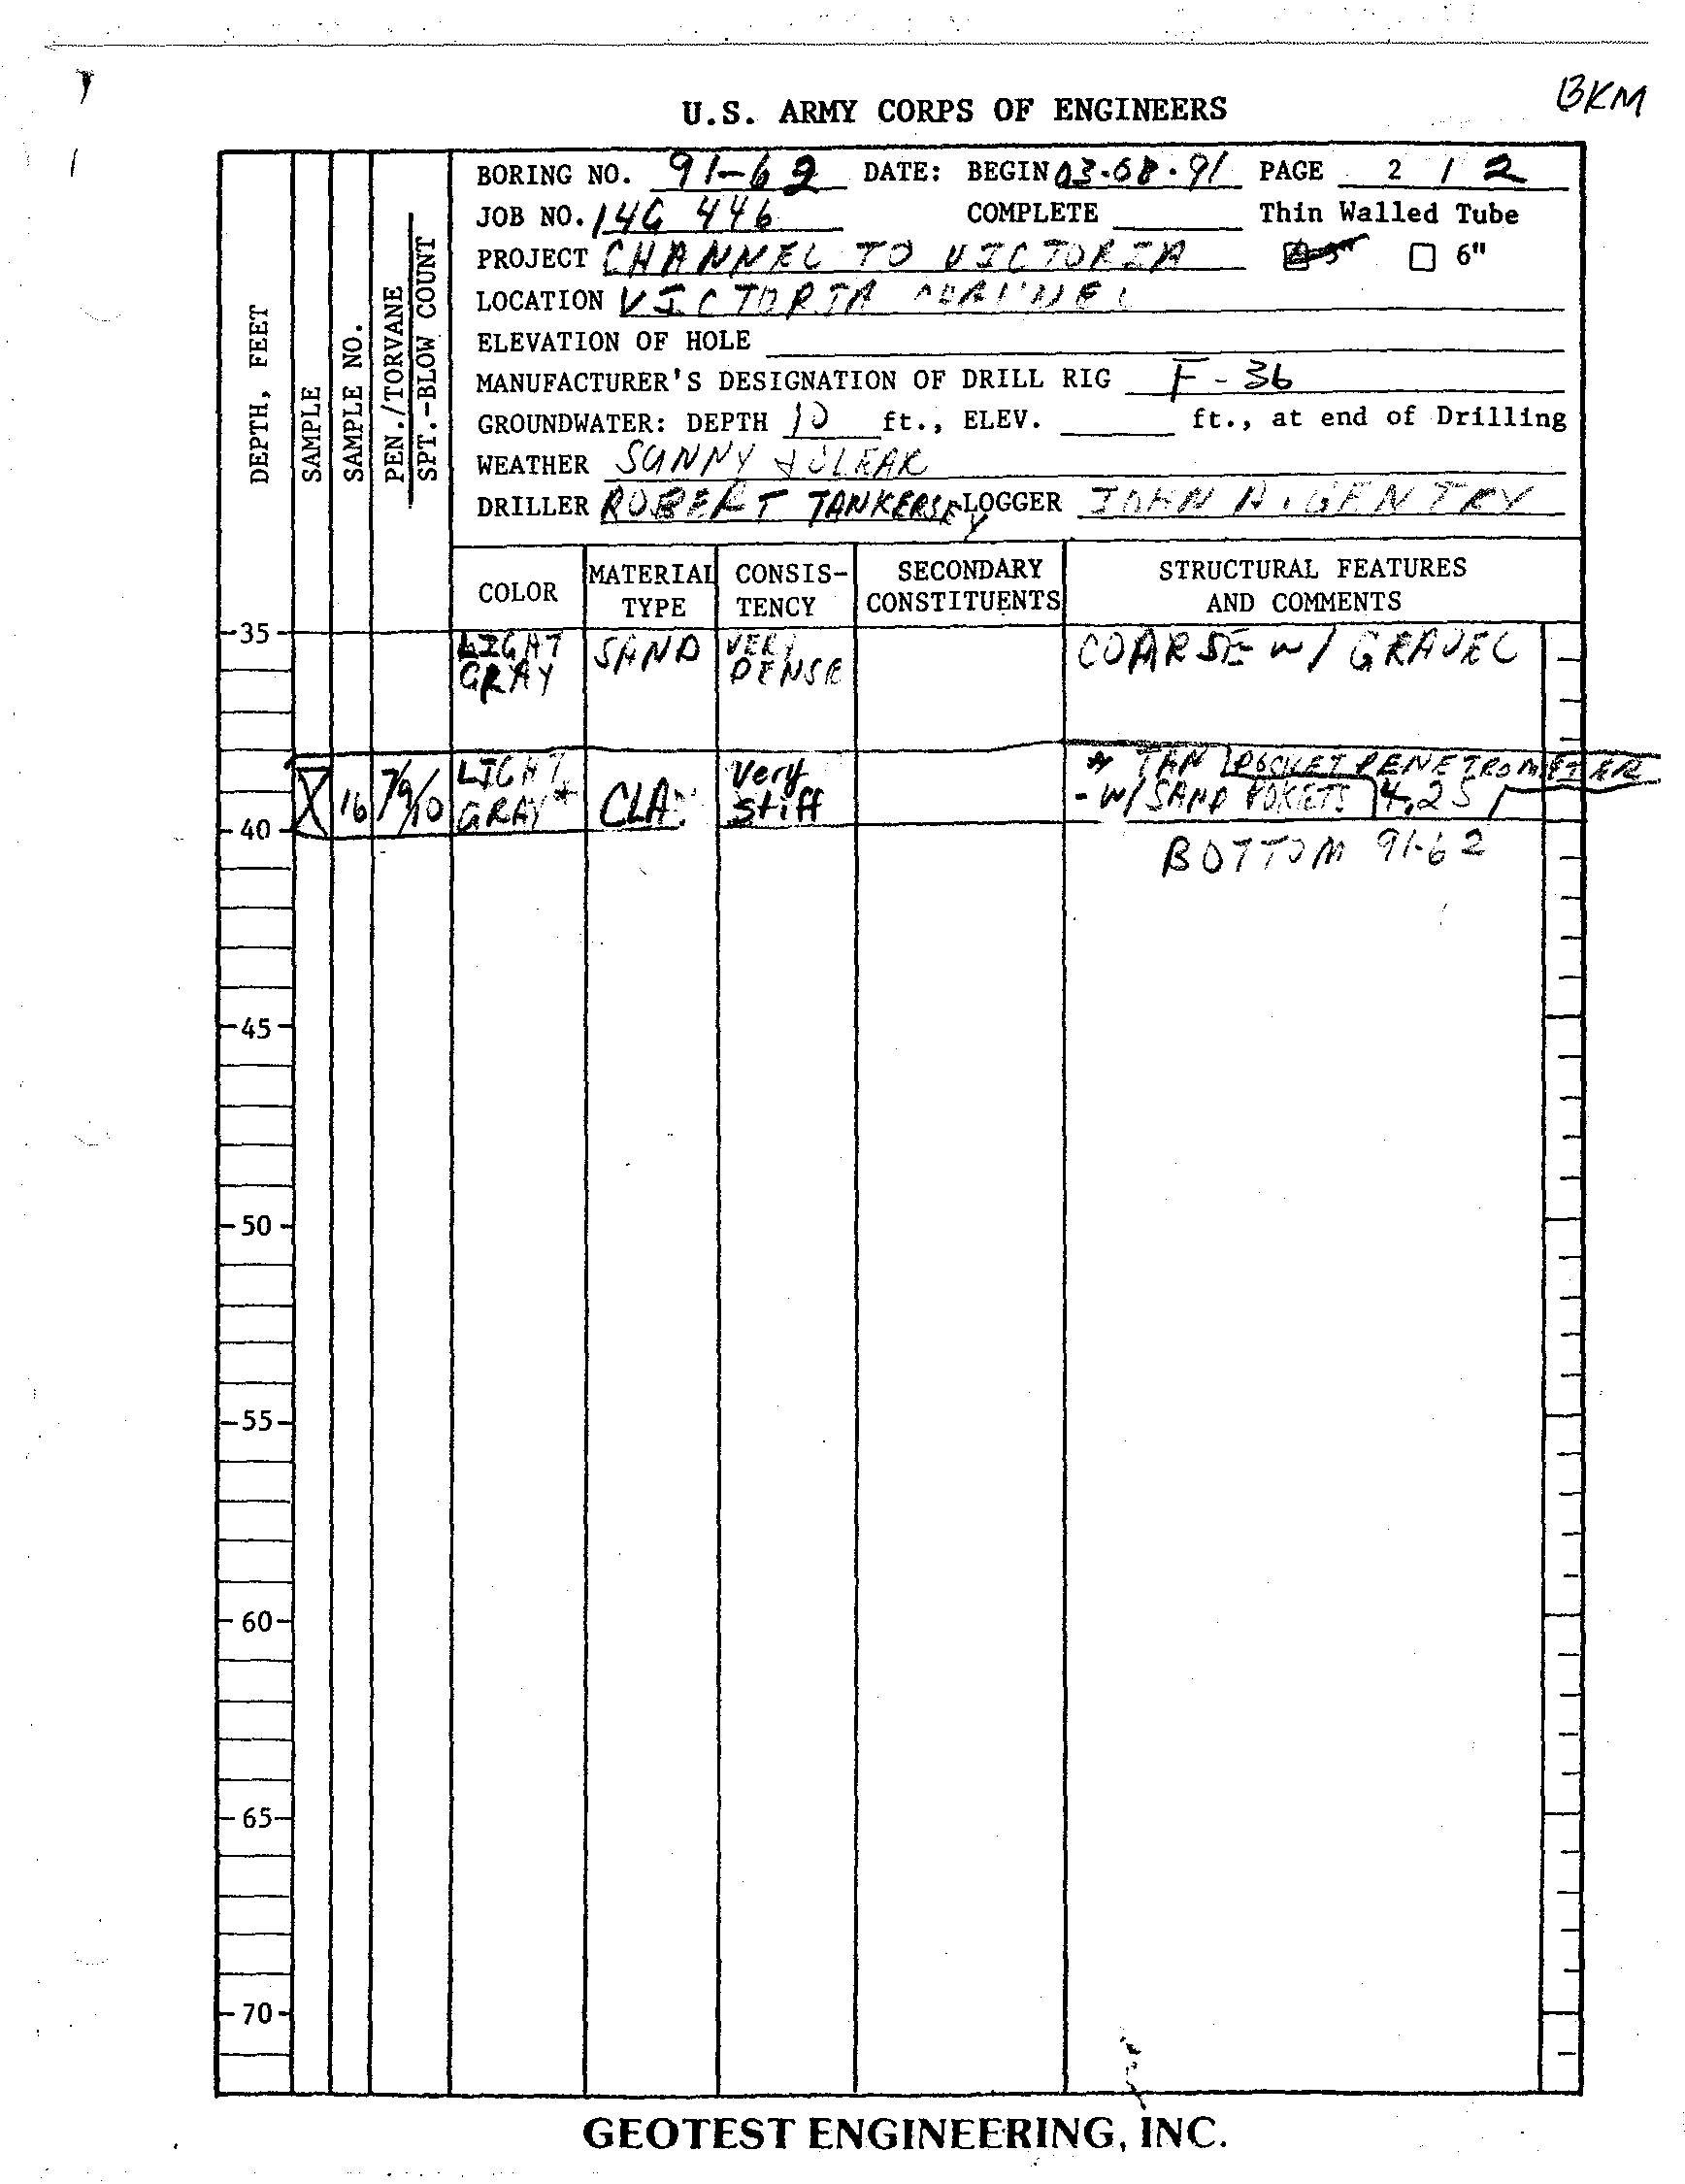 BKM
U.S. ARMY CORPS OF ENGINEERS
BORING NO. 91-62 DATE: BEGIN 03-08-91 PAGE 2 / 2
JOB NO. 14G 446 COMPLETE Thin Walled Tube
PROJECT CHANNEL TO VICTORIA 3" 6"
LOCATION VICTORIA CHANNEL
ELEVATION OF HOLE
MANUFACTURER'S DESIGNATION OF DRILL RIG F-36
GROUNDWATER: DEPTH 10 ft., ELEV. ft., at end of Drilling
WEATHER SUNNY & CLEAR
DRILLER ROBERT TANKERSLEY LOGGER JOHN A. GENTRY
DEPTH, FEET
SAMPLE
SAMPLE NO.
PEN./TORVANE
SPT.-BLOW COUNT
COLOR MATERIAL TYPE CONSIS-TENCY SECONDARY CONSTITUENTS STRUCTURAL FEATURES AND COMMENTS
35 LIGHT GRAY SAND VERY DENSE COARSE w/ GRAVEL
16 7/9/10 LIGHT GRAY* CLAY Very Stiff * TAN POCKET PENETROMETER
- W/ SAND POKETS 4.25
40
BOTTOM 91-62
45
50
55
60
65
70
GEOTEST ENGINEERING, INC.